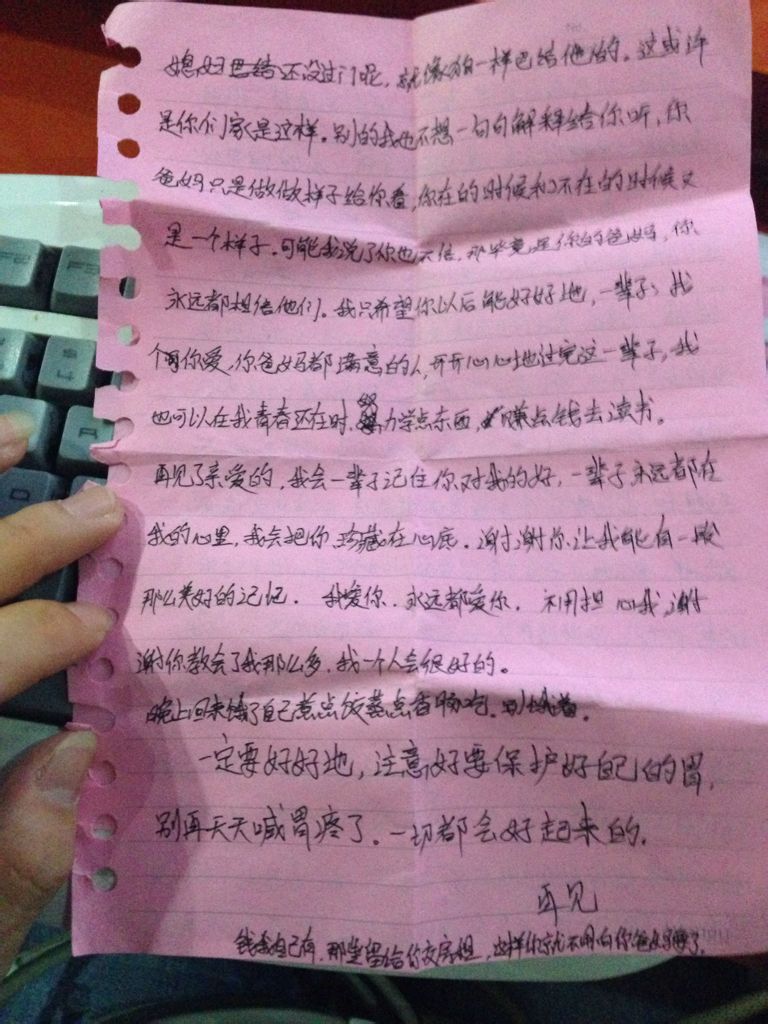 媳妇巴结还没过门呢，就像狗一样巴结他们的。这或许
是你们家是这样。别的我也不想一句句解释给你听，你
爸妈只是做做样子给你看，你在的时候和不在的时候又
是一个样子。可能我说了你也不信，那毕竟是你的爸妈，你
永远都相信他们。我只希望你以后能好好地，一辈子，找
个你爱，你爸妈都满意的人，开开心心地过完这一辈子，我
也可以在我青春还在时，努力学点东西，赚点钱去读书。
再见了亲爱的，我会一辈子记住你对我的好，一辈子永远都在
我的心里，我会把你珍藏在心底。谢谢你让我能有一段
那么美好的记忆。我爱你，永远都爱你，不用担心我，谢
谢你教会了我那么多，我一个人会很好的。
晚上回来饿了自己煮点饺蒸点香肠吃。别饿着。
一定要好好地，注意好要保护好自己的胃，
别再天天喊胃疼了。一切都会好起来的。
再见
钱我自己有，那些留给你交房租，这样你就不用向你爸妈要了。